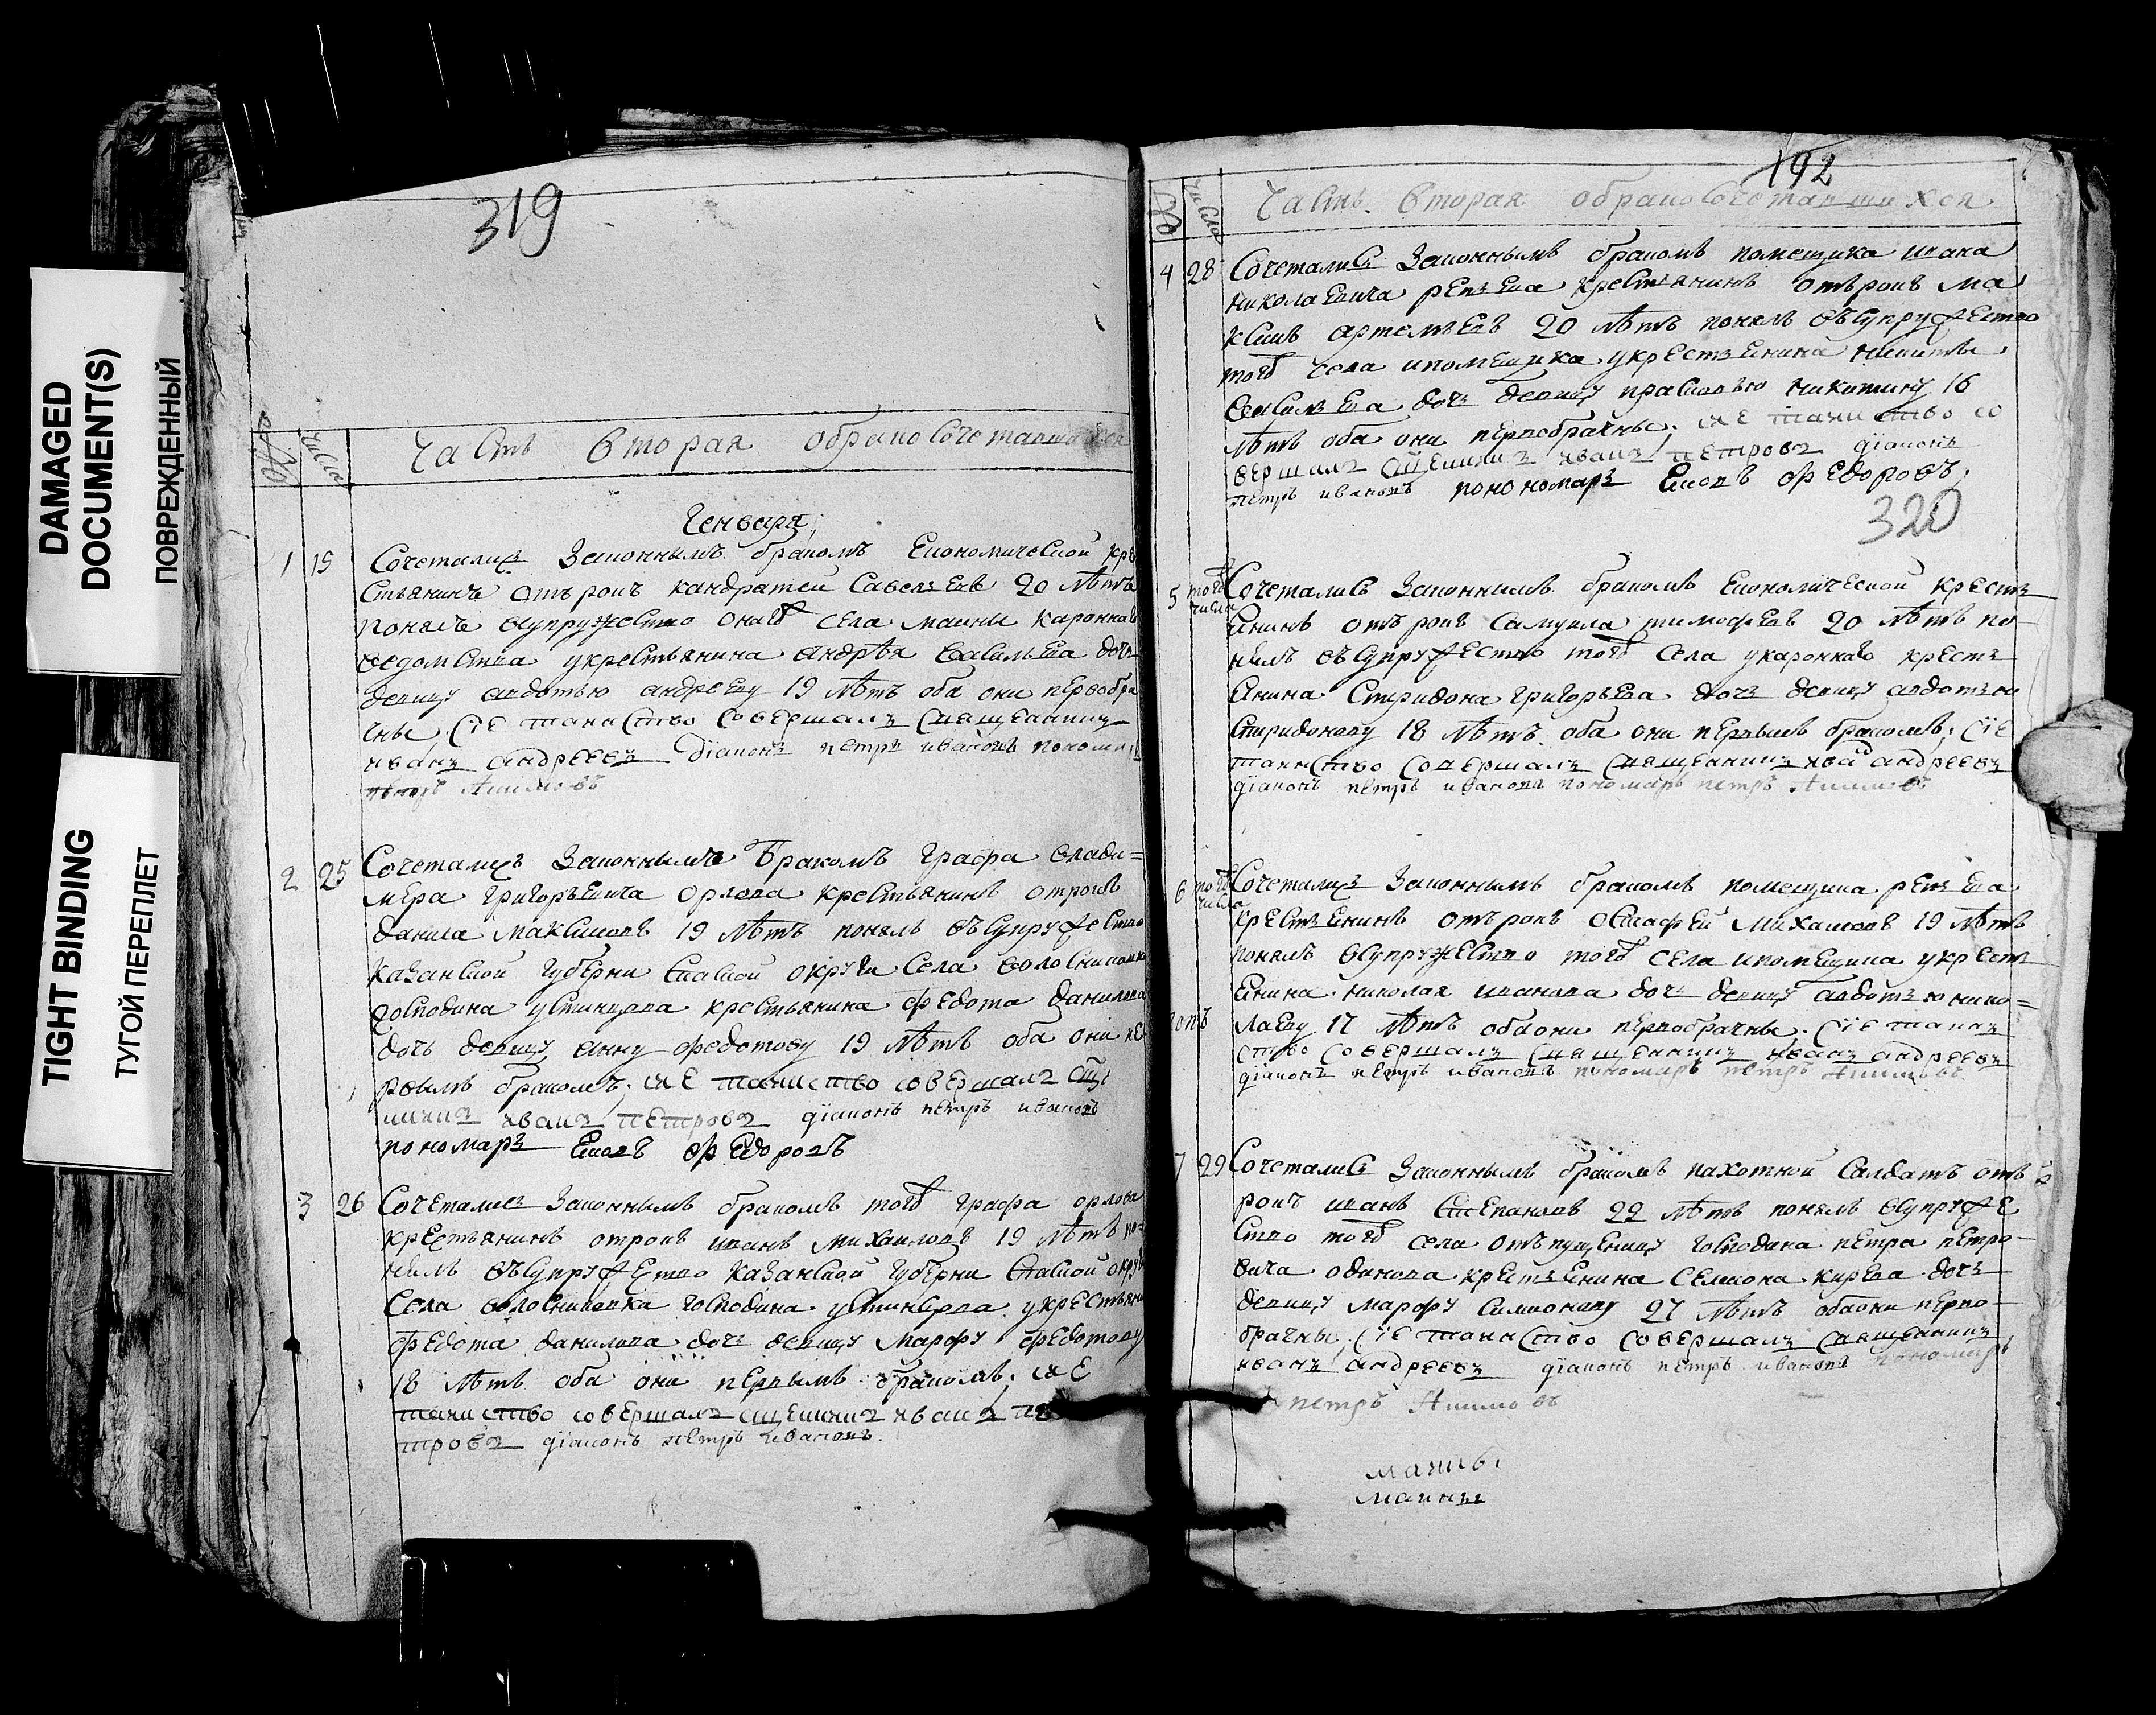 DAMAGED
DOCUMENT(S)
ПОВРЕЖДЕННЫЙ
TIGHT BINDING
ТУГОЙ ПЕРЕПЛЕТ
319
Число
Часть вторая обрако сочетавшихся
Генваря
1 15 Сочетались законнымъ бракомъ економической кре
стьянинъ отърокъ кандратей савельевъ 20 лѣтъ
понялъ всупружество оного села маины каронного
ведомства укрестьянина андрѣя васильева дочь
девицу авдотью андрееву 19 лѣтъ оба они первобра
чны, сїе таинство совершалъ священникъ
иванъ андреевъ дїаконъ петръ ивановъ пономарь
петръ
2 25 Сочетались законнымъ бракомъ графа влади=
мера григорьевича орлова крестьянинъ отрокъ
данила максимовъ 19 лѣтъ понялъ въсупружество
казанской губерни спаской округи села
господина устинцова крестьянина федота данилова
дочь девицу анну федотову 19 лѣтъ оба они пе
рвымъ бракомъ, сие таинство совершалъ сщ
иванъ петровъ дїаконъ петръ ивановъ
пономарь федоровъ
3 26 Сочетались законнымъ бракомъ тогожъ графа орлова
крестьянинъ отрокъ иванъ михаиловъ 19 лѣтъ по=
нялъ въсупружество казанской губерни спаской округи
села господина укрестьяни
федота данилова дочь девицу марфу федотову
18 лѣтъ оба они первымъ бракомъ, сие
таинство совершалъ иванъ пе
тровъ дїаконъ петръ ивановъ.
192
Число
Часть вторая обрако сочетавшихся
4 28 Сочетались законнымъ бракомъ помещика ивана
николаевича репьева крестьянинъ отърокъ ма
ксимъ артемьевъ 20 лѣтъ понялъ въсупружество
тогожъ села ипомещика укрестьянина никиты
васильева дочь девицу прасковью никитину 16
лѣтъ оба они первобрачны, сие таинство со
вершалъ иванъ петровъ дїаконъ
петръ ивановъ понономарь федоровъ,
320
5 тогожъ числа Сочетались законнымъ бракомъ економической кресть
янинъ отърокъ самуила тимофеевъ 20 лѣтъ по
нялъ въсупружество тогожъ села укаронного кресть
янина спиридона григорьева дочь девицу авдотью
спиридонову 18 лѣтъ оба они первымъ бракомъ, сїе
таинство совершалъ священникъ андреевъ
дїаконъ петръ ивановъ пономарь петръ
6 тогожъ числа Сочетались законнымъ бракомъ помещика репьева
крестьянинъ отърокъ михаиловъ 19 лѣтъ
понялъ всупружество тогожъ села ипомещика укресть
янина николая иванова дочь девицу авдотью нико=
лаеву 17 лѣтъ оба они первобрачны, сїе таин
ство совершалъ священникъ иванъ андреевъ
дїаконъ петръ ивановъ пономарь петръ
7 29 Сочетались законнымъ бракомъ пахотной салдатъ отъ
рокъ иванъ степановъ 22 лѣтъ понялъ всупруже
ство тогожъ села отъпущеницу господина петра петро-
вича одинова крестьянина семиона кирева дочь
девицу марфу симионову 27 лѣтъ оба они перво-
брачны, сїе таинство совершалъ священникъ
иванъ андреевъ дїаконъ петръ ивановъ пономарь
петръ
маины